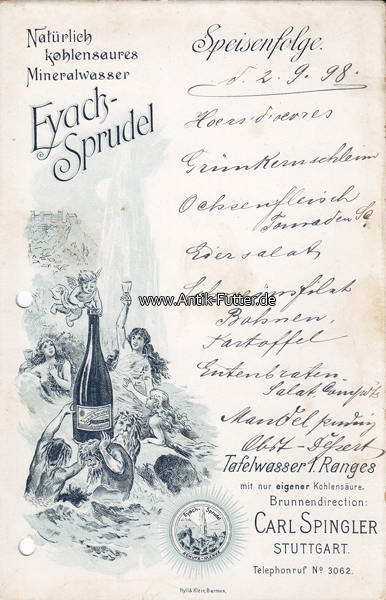 Natürlich
kohlensaures
Mineralwasser
Eyach-
Sprudel
Speisenfolge.
d. 2. 9. 98.
Hoers d'oevres
Grünkernschleim
Ochsenfleisch
Tomaden Sc
Eiersalat
www.Antik-Futter.de
Bohnen,
Kartoffel
Entenbraten
Salat, Compot
Mandel pudding
Obst - Dessert
Tafelwasser I. Ranges
mit nur eigener Kohlensäure.
Brunnendirection:
CARL SPINGLER
STUTTGART.
Telephonruf No 3062.
Eyach-Sprudel
SCHUTZ-MARKE
Hyll & Klein, Barmen.